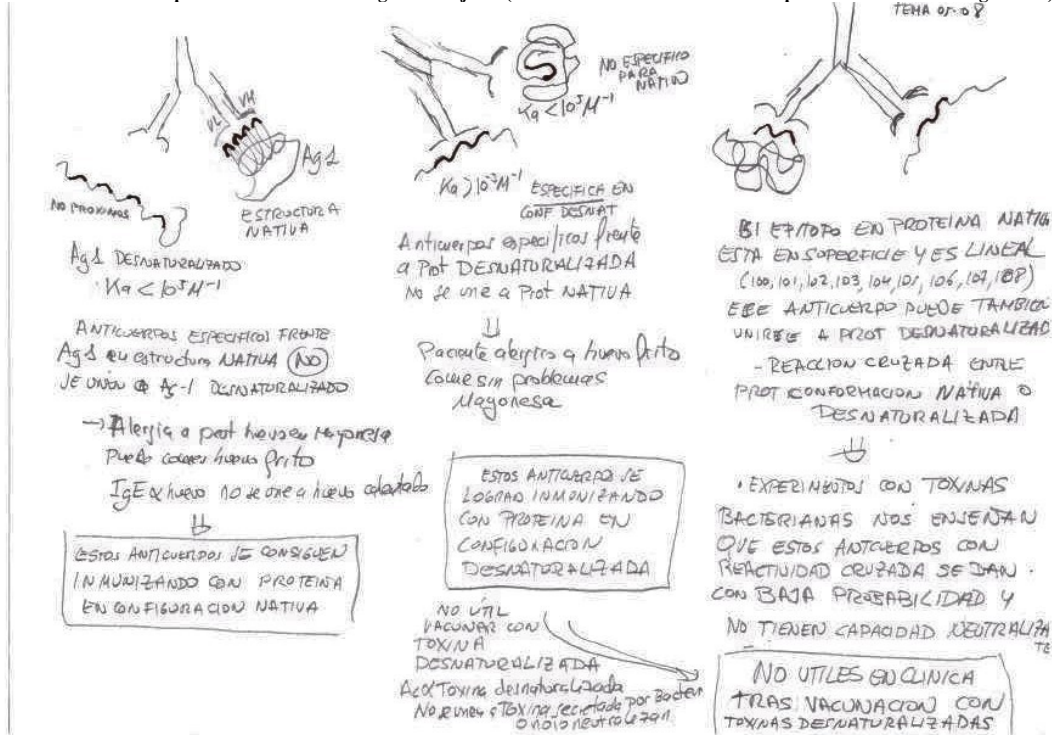 TEMA 05-08
VL
VH
Ag1
NO PROXIMOS
ESTRUCTURA
NATIVA
Ag1 DESNATURALIZADO
Ka < 10⁵ M⁻¹
ANTICUERPOS ESPECIFICOS FRENTE
Ag1 en estructura NATIVA (NO)
SE UNEN a Ag-1 DESNATURALIZADO
→ Alergia a prot huevo en Mayonesa
Puede comer huevo frito
IgE α huevo no se une a huevo calentado
ESTOS ANTICUERPOS SE CONSIGUEN
INMUNIZANDO CON PROTEINA
EN CONFIGURACION NATIVA
NO ESPECIFICO
PARA
NATIVO
Ka < 10⁵ M⁻¹
ESPECIFICA EN
CONF DESNAT
Anticuerpos especificos frente
a Prot DESNATURALIZADA
No se une a Prot NATIVA
Paciente alergico a huevo frito
Come sin problemas
Mayonesa
ESTOS ANTICUERPOS SE
LOGRAN INMUNIZANDO
CON PROTEINA EN
CONFIGURACION
DESNATURALIZADA
NO ÚTIL
VACUNAR CON
TOXINA
DESNATURALIZADA
Ac α Toxina desnaturalizada
No se unen a Toxina secretada por Bacteri
o no lo neutralizan
SI EPITOPO EN PROTEINA NATIVA
ESTA EN SUPERFICIE Y ES LINEAL
(100, 101, 102, 103, 104, 105, 106, 107, 108)
ESE ANTICUERPO PUEDE TAMBIEN
UNIRSE A PROT DESNATURALIZAD
- REACCION CRUZADA ENTRE
PROT CONFORMACION NATIVA O
DESNATURALIZADA
• EXPERIMENTOS CON TOXINAS
BACTERIANAS NOS ENSEÑAN
QUE ESTOS ANTICUERPOS CON
REACTIVIDAD CRUZADA SE DAN
CON BAJA PROBABILIDAD Y
NO TIENEN CAPACIDAD NEUTRALIZAN
TE
NO UTILES EN CLINICA
TRAS VACUNACION CON
TOXINAS DESNATURALIZADAS